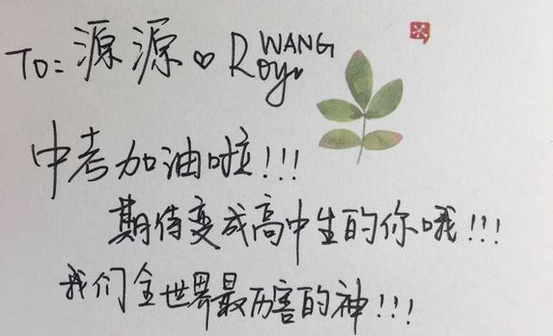 To: 源源♡Roy WANG
中考加油啦!!!
期待变成高中生的你哦!!!
我们全世界最厉害的神!!!